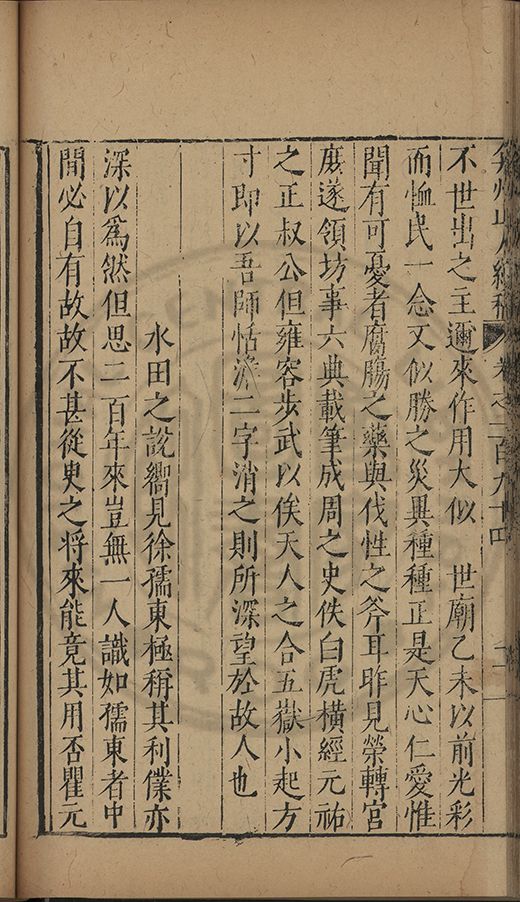 弇州山人續稿 卷之一百九十四 二
不世出之主邇來作用大似　世廟乙未以前光彩
而恤民一念又似勝之災異種種正是天心仁愛惟
聞有可憂者腐腸之藥與伐性之斧耳昨見榮轉宮
庶遂領坊事六典載筆成周之史佚白虎橫經元祐
之正叔公但雍容步武以俟天人之合五嶽小起方
寸即以吾師恬澹二字消之則所深望於故人也
水田之說嚮見徐孺東極稱其利僕亦
深以爲然但思二百年來豈無一人識如孺東者中
間必自有故故不甚從臾之将來能竟其用否瞿元